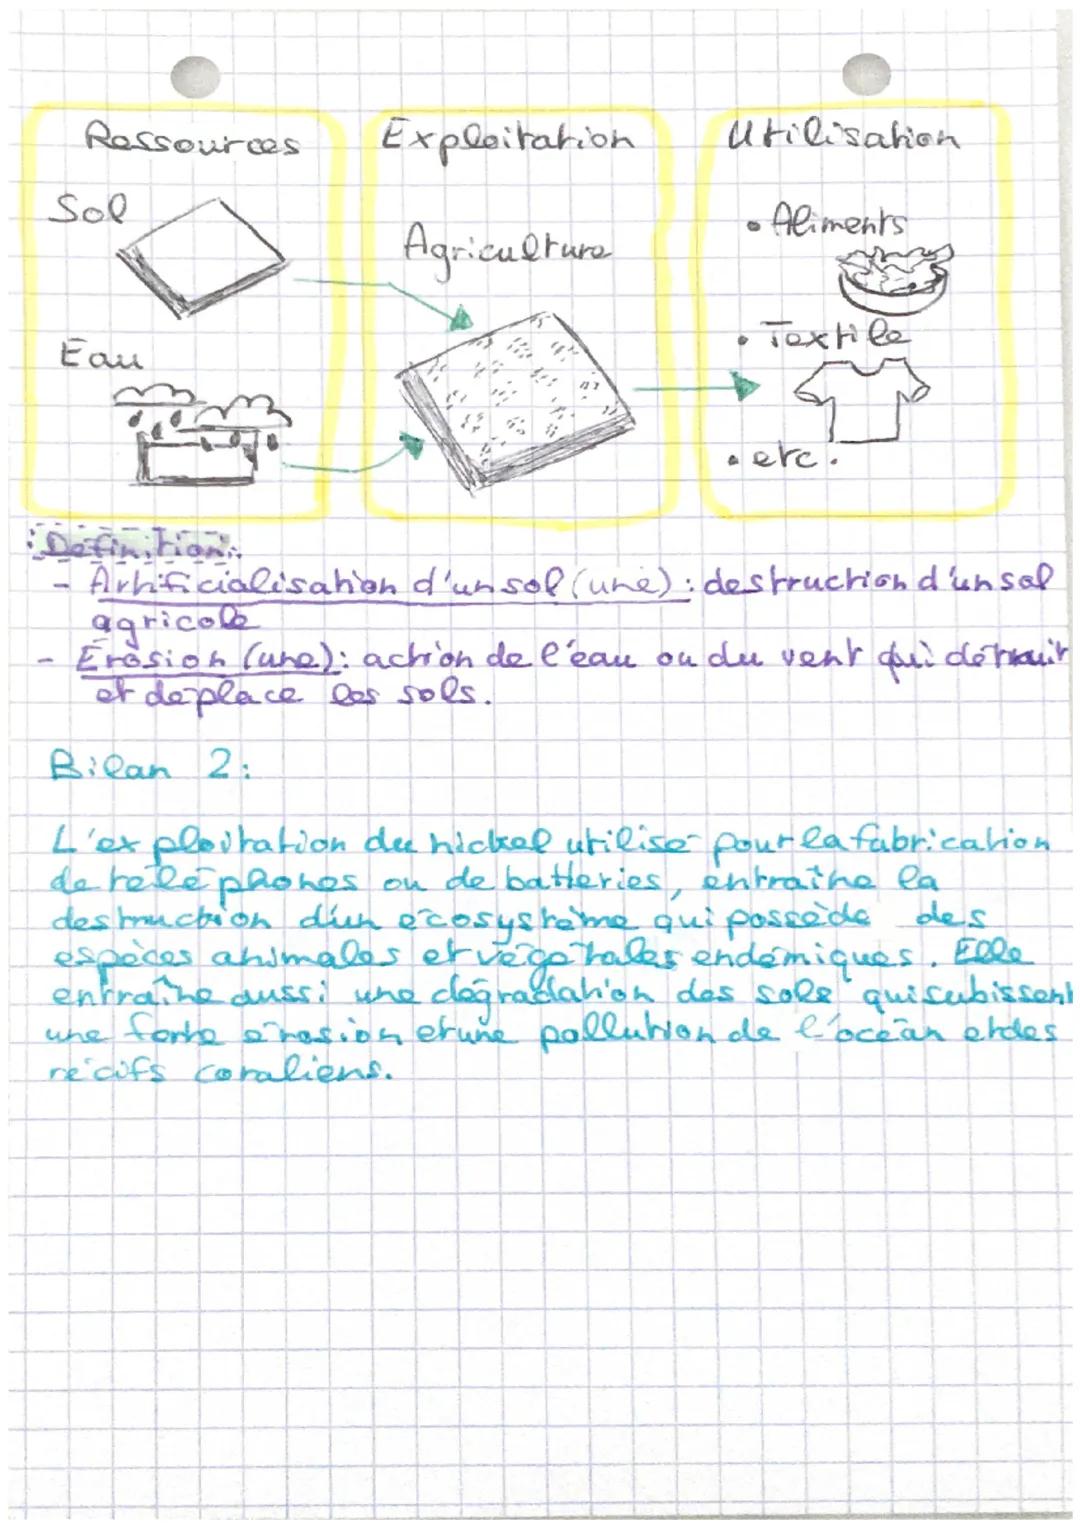 Ressources
Exploitation
Utilisation
Sol
Eau
Agriculture
• Aliments
• Textile
• etc.
Définition:
- Artificialisation d'un sol (une) : destruction d'un sol
agricole
- Erosion (une) : action de l'eau ou du vent qui détruit
et déplace les sols.
Bilan 2:
L'exploitation du nickel utilisé pour la fabrication
de téléphones ou de batteries, entraîne la
destruction d'un écosystème qui possède des
espèces animales et végétales endémiques. Elle
entraîne aussi une dégradation des sols qui subissent
une forte érosion et une pollution de l'océan et des
récifs coraliens.